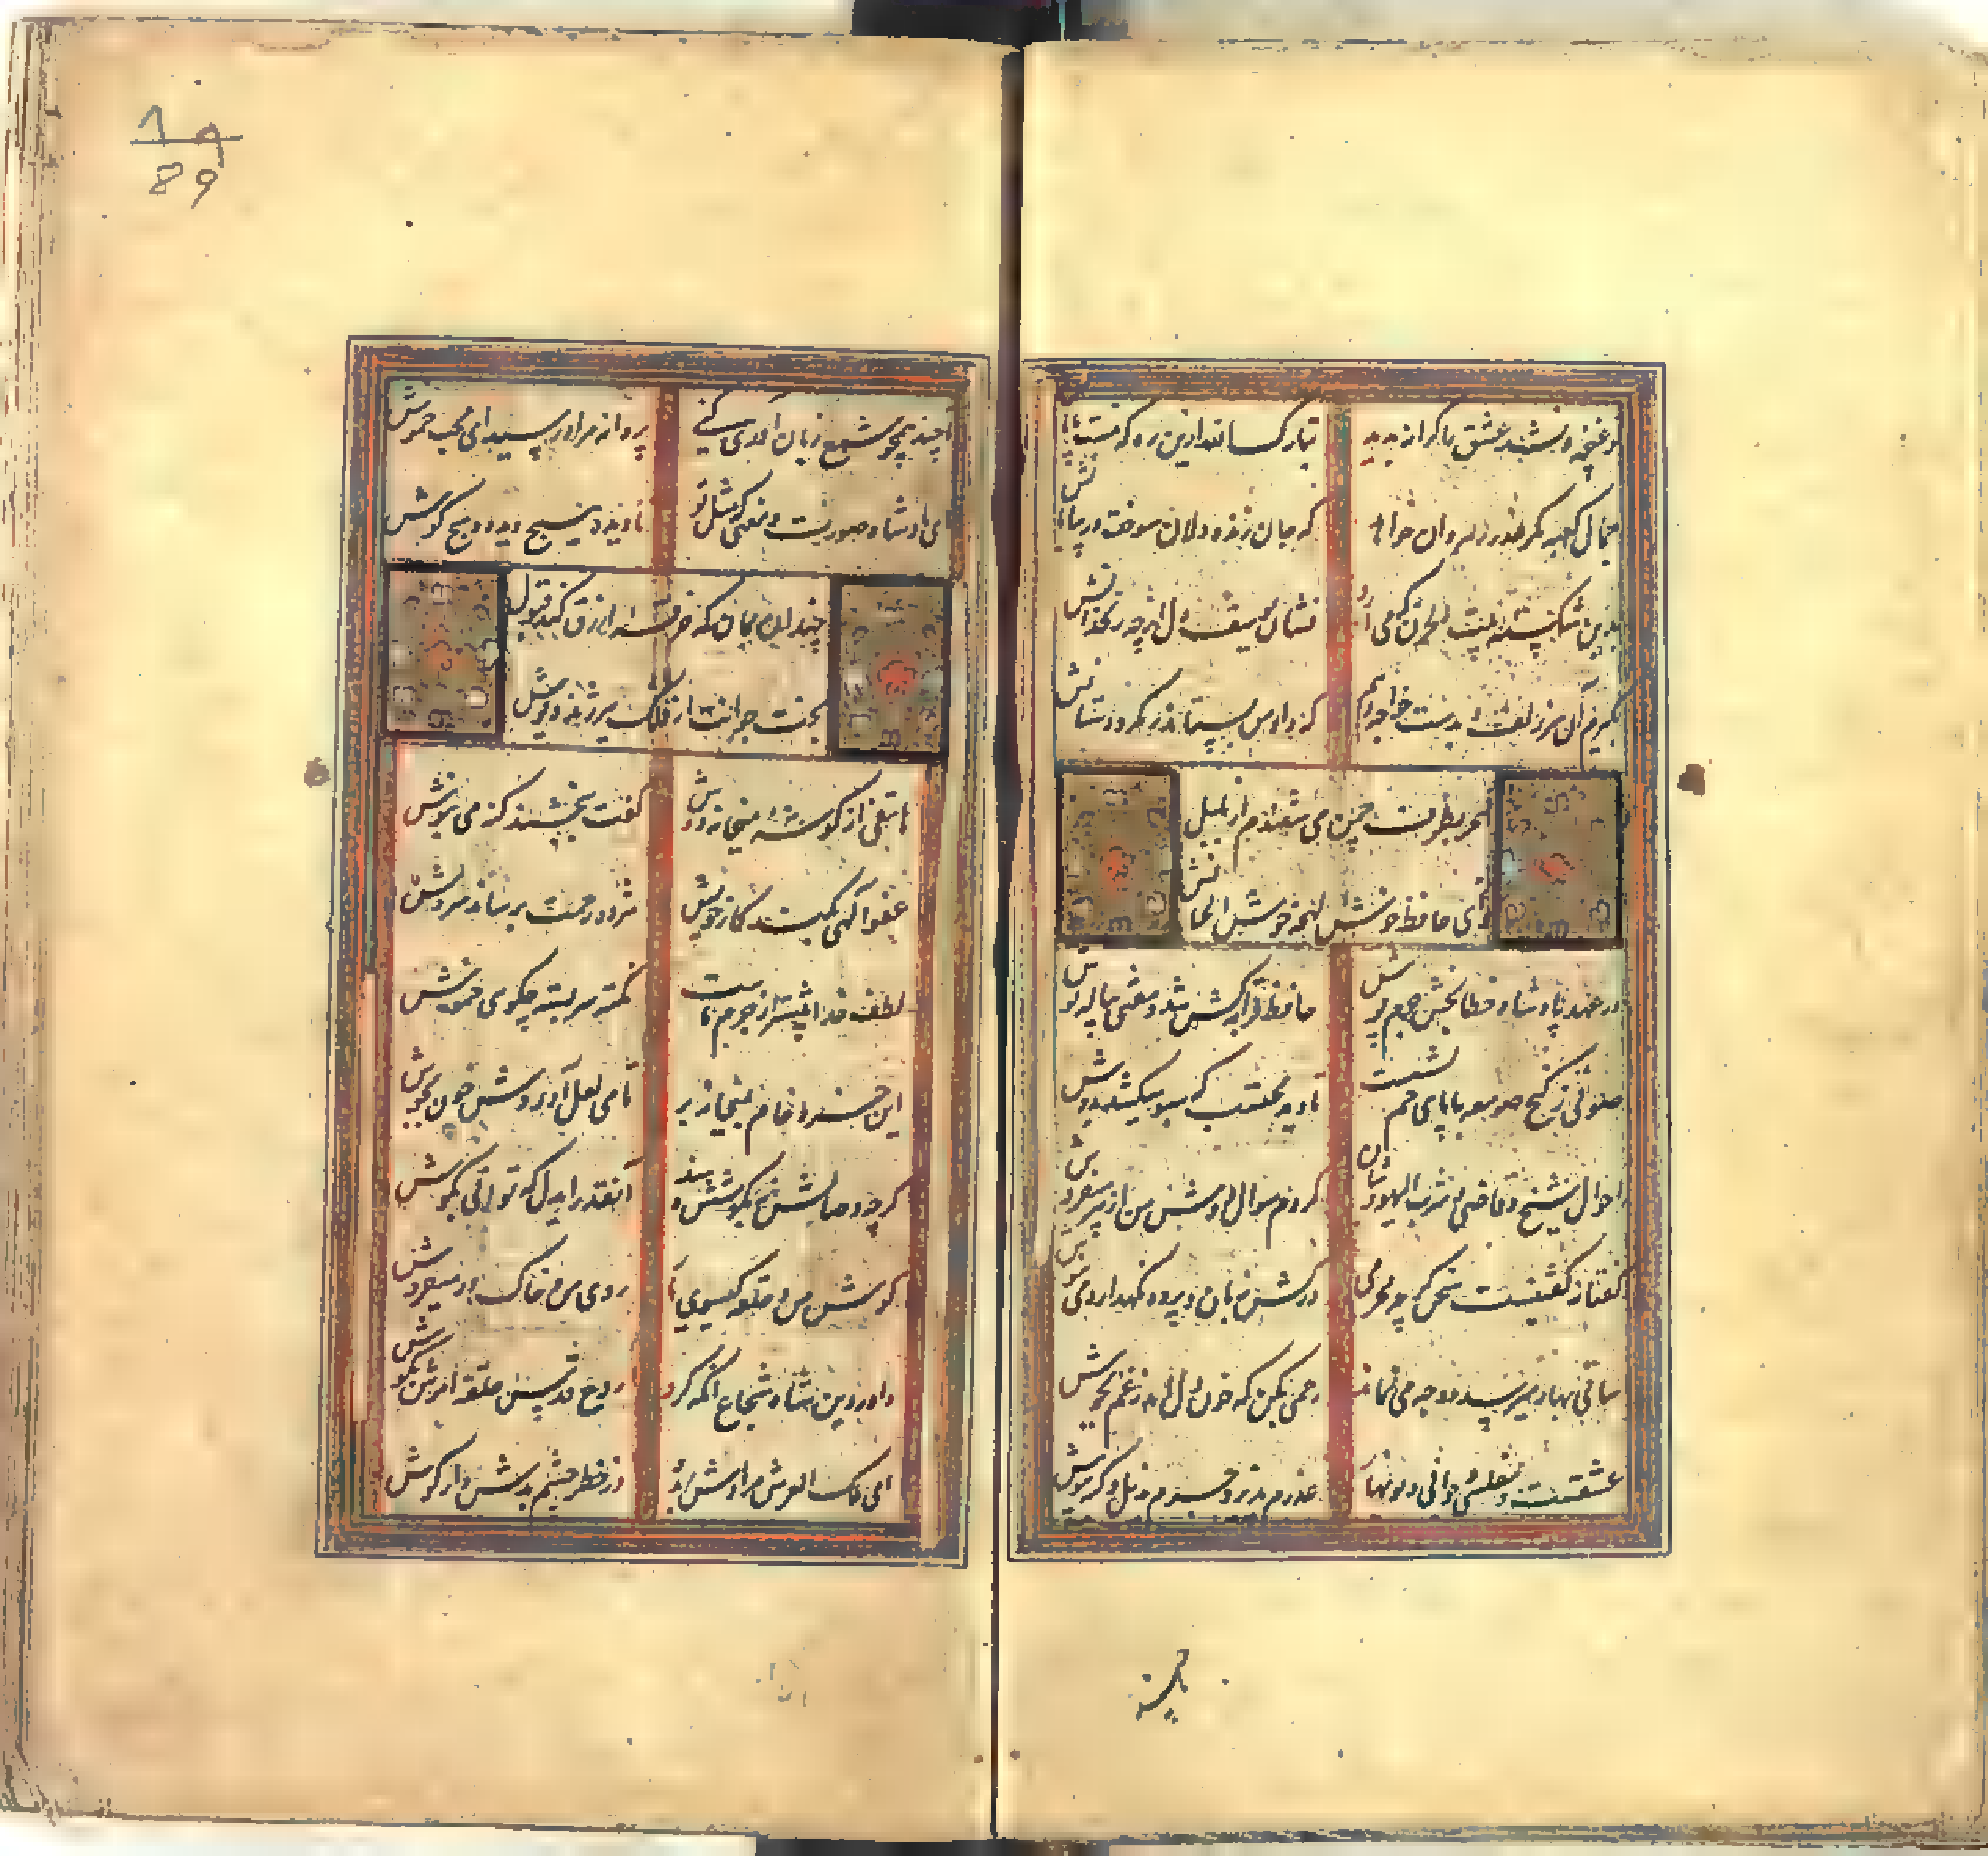 تبارک الله ازین ره که نیست پایانش
جمال کعبه مگر عذر رهروان خواهد
که جان زنده دلان سوخت در بیابانش
بدین شکسته بیت الحزن که می آرد
نشان یوسف دل از چه زنخدانش
بگیرم آن سر زلف و بدست خواجه دهم
که داد من بستاند مگر ز دستانش
سحر بطرف چمن می شنیدم از بلبل
نوای حافظ خوش لهجه خوش الحانش
در عهد پادشاه خطابخش جرم پوش
حافظ قرابه کش شد و مفتی پیاله نوش
صوفی ز کنج صومعه با پای خم نشست
تا دید محتسب که سبو میکشد بدوش
احوال شیخ و قاضی و شرب الیهودشان
کردم سوال دوش من از پیر میفروش
گفتا نه گفتنیست سخن گرچه محرمی
درکش زبان و پرده نگهدار و می نوش
ساقی بهار میرسد و وجه می نماند
رحمی بکن که خون دل آمد ز غم بجوش
عشقست و مفلسی و جوانی و نوبهار
عذرم پذیر و جرم بذیل کرم بپوش
چند
تا چند همچو شمع زبان آوری کنی
پروانه مراد رسید ای محب خموش
ای پادشاه صورت و معنی که مثل تو
نادیده هیچ دیده و هیچ گوش
چندان بمان که خرقه ازرق کند قبول
بخت جوانت از فلک پیر ژنده پوش
هاتفی از گوشه میخانه دوش
گفت ببخشند گنه می بنوش
عفو الهی بکند کار خویش
مژده رحمت برساند سروش
لطف خدا بیشتر از جرم ماست
نکته سربسته چگوی خموش
این خرد خام بمیخانه بر
تا می لعل آوردش خون بجوش
گرچه وصالش نه بکوشش دهند
آنقدر ایدل که توانی بکوش
گوش من و حلقه گیسوی یار
روی من و خاک در میفروش
داور دین شاه شجاع آنکه کرد
روح قدس حلقه امرش بگوش
ای ملک العرش مرادش بده
وز خطر چشم بدش دار گوش
89